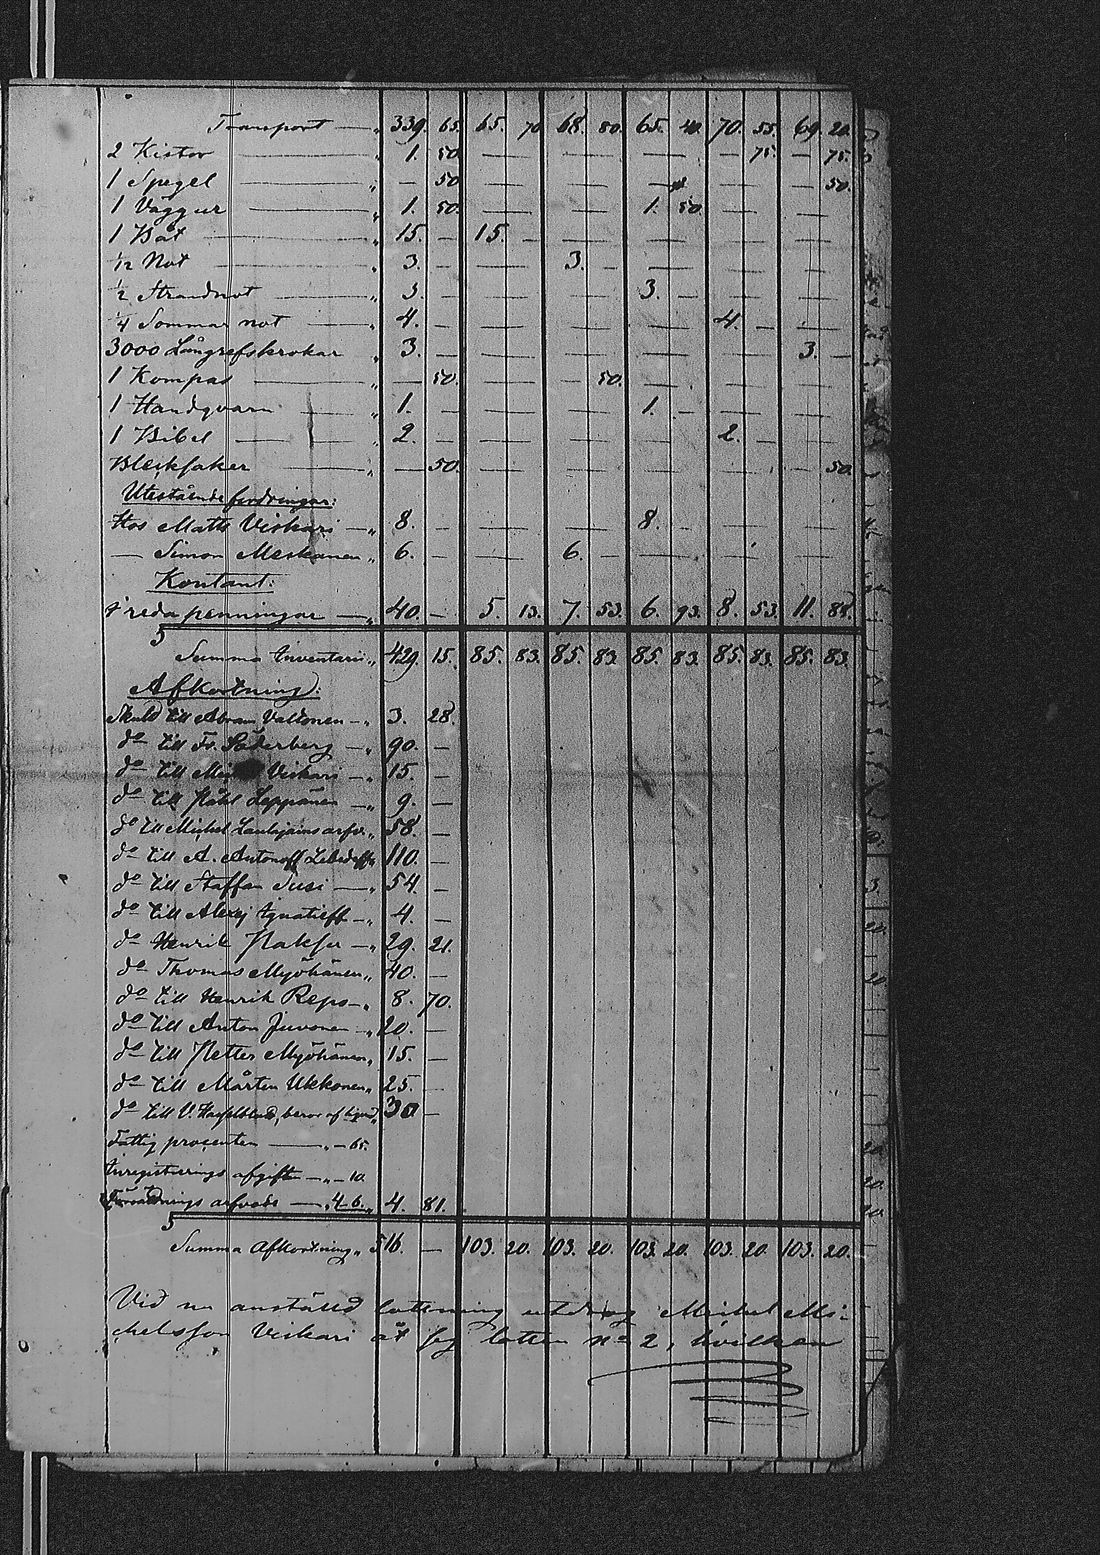 Transport — „ 339. 65. 65. 70 68. 80. 65. 40. 70. 55. 69. 20.
2 Kistor — „ 1. 50. — — — — — — — 75. — 75.
1 Spegel — „ — 50 — — — — — — — 50.
1 Väggur — „ 1. 50. — — — — 1. 50. — — — —
1 Båt — „ 15. — 15. — — — — — — — — —
1/2 Not — „ 3. — — — 3. — — — — — —
1/2 Strandnot — „ 3. — — — — 3. — — — —
1/4 Sommar not — „ 4. — — — — — — 4. — — —
3000 Långrefskrokar „ 3. — — — — — — — — 3. —
1 Kompas — „ — 50. — — — 50. — — — — —
1 Handqvarn — „ 1. — — — — — 1. — — — — —
1 Bibel — „ 2. — — — — — — 2. — — —
Blecksaker — „ — 50. — — — — — — — — 50.
Utestående fordringar:
Hos Matts Viskari — „ 8. — — — — — 8. — — — — —
— Simon Meskanen „ 6. — — — 6. — — — — — —
Kontant:
i reda penningar — „ 40. — 5. 13. 7. 53. 6. 93. 8. 53. 11. 88.
Summa Inventarii „ 429. 15. 85. 83. 85. 83. 85. 83. 85. 83. 85. 83.
Afkortning:
Skuld till Abram Valtonen — „ 3. 28.
do till Fr. Söderberg — „ 90. —
do till Viskari — „ 15. —
do till Påhl Leppänen — „ 9. —
do till Michel arfv. „ 58. —
do till A. Antonoff Lebedeff „ 110. —
do till Staffan Susi — „ 54. —
do till Alexej Ignatieff — „ 4. —
do Henrik — „ 29. 21.
do Thomas Myöhänen „ 40. —
do till Henrik Repo — „ 8. 70.
do till Anton Juvonen — „ 20. —
do till Petter Myöhänen „ 15. —
do till Mårten Ukkonen „ 25. —
do till V. „ 30 —
Fattig procenten — „ — 65.
Inregistrerings afgift — „ — 10.
arfvode — „ 4 6. „ 4. 81.
Summa Afkortning „ 516. — 103. 20. 103. 20. 103. 20. 103. 20. 103. 20.
Vid nu anställd lottning utdrog Michel Mi-
chelsson Viskari åt sig lotten No 2, hvilken